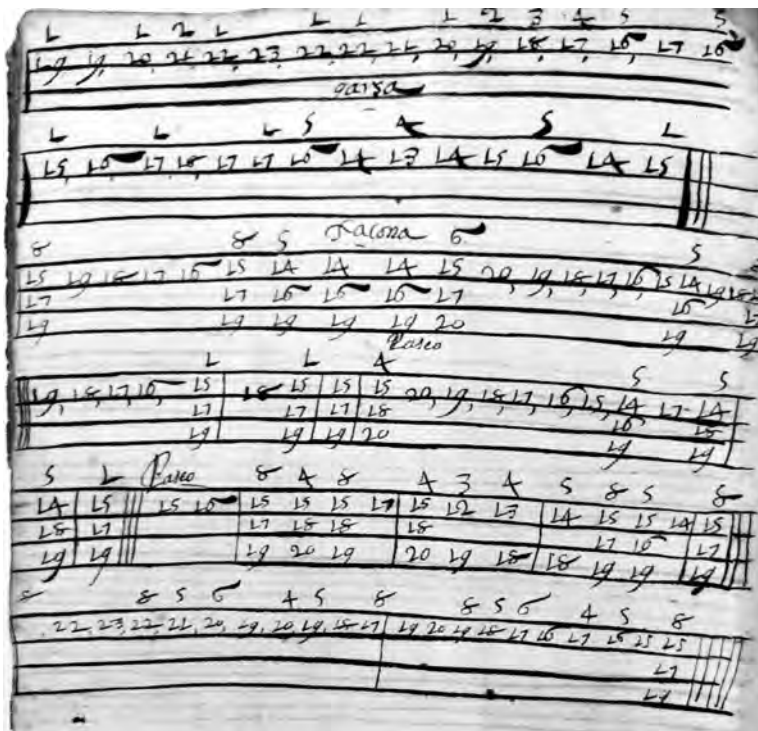 1 1 2 1 1 1 1 2 3 4 5 5
19 19, 20, 21, 22, 23, 22, 22, 21, 20, 19, 18, 17, 16, 17 16
garsa
1 1 1 5 4 5 1
15, 16 17 18, 17 17 16 14 13 14 15 16 14 15
8 8 5 Xacona 6 5
15 19 18 17 16 15 14 14 14 15 20, 19, 18, 17, 16, 15 14 19 18
17 17 16 16 16 17 16
19 19 19 19 19 20 19 19
Paseo
1 1 4 5 5
19, 18, 17, 16, 15 18 15 15 15 20, 19, 18, 17, 16, 15, 14 17 14
17 17 17 18 16
19 19 19 20 19 19
5 1 Paseo 8 4 8 4 3 4 5 8 5 8
14 15 15 16 15 15 15 17 15 12 13 14 15 15 14 15
18 17 17 18 18 18 17 16 17
19 19 19 20 19 20 19 18 18 19 19 19
8 8 5 6 4 5 8 8 5 6 4 5 8
22, 23, 22, 21, 20, 19, 20, 19, 18 17 19 20 19 18 17 16 17 16 15 15
17
19